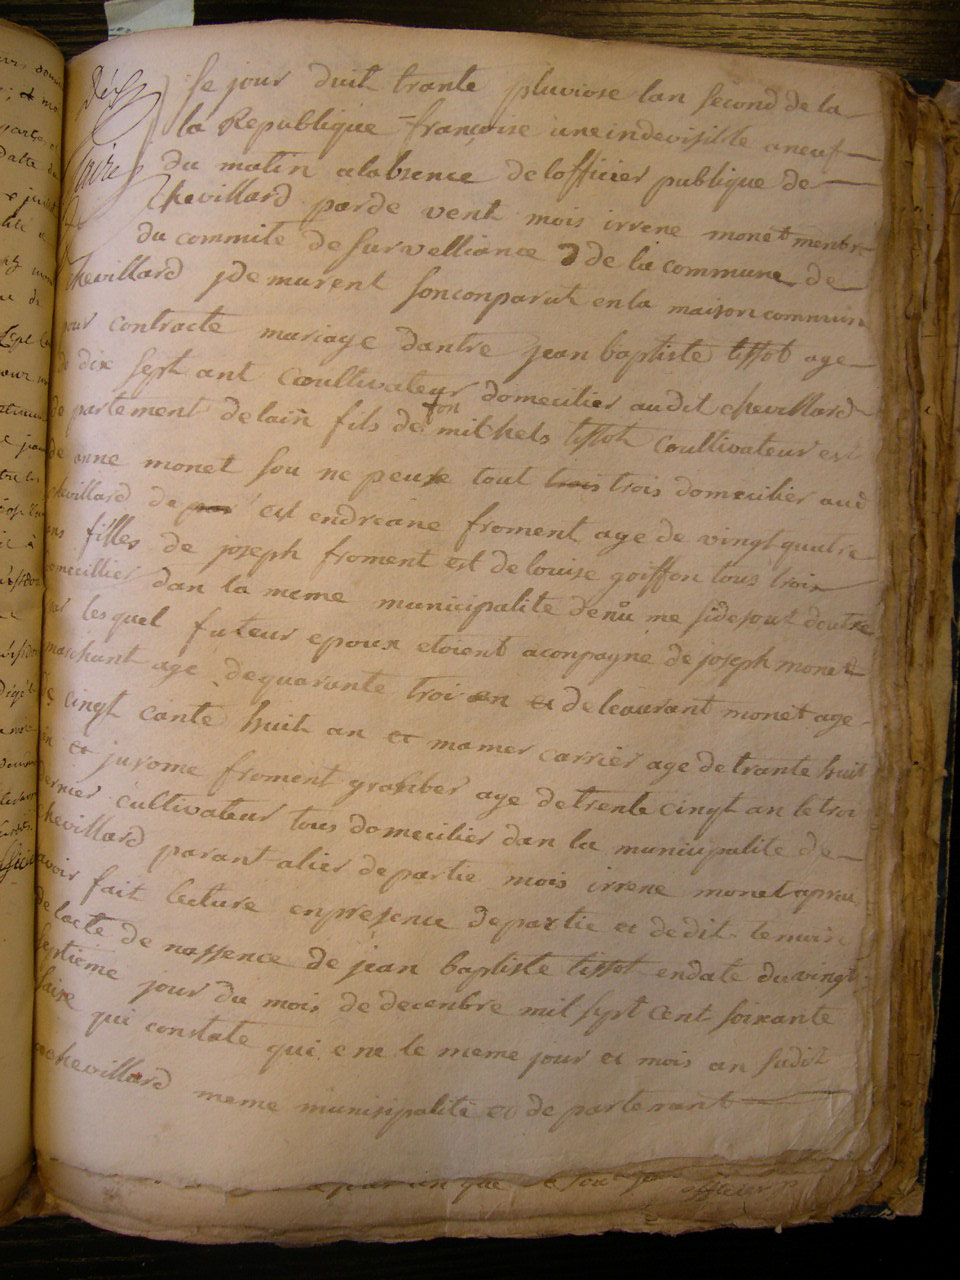 se jour duit trante pluviose lan second de la
la Republique francoise une indevisible a neuf
du matin alabsence delofficier publique de
Chevillard parde vent mois irrene monet menbre
du commite de survelliance de la commune de
chevillard jdemurent sonconparut en la maison commun
pour contracte mariage dantre jean baptiste tissot age
de dix sept ant coultivateur domecilier audit chevillard
departement delain fils de ton mithels tissot coultivateur est
de anne monet sou ne peuse tout trois domecilier aud
chevillard de est endreane froment age de vingt quatre
ans filles de joseph froment est de louise goiffon tous trois
domecillier dan la meme municipalite denu me sidesout deutre
par lesquel futeur epoux etoient aconpagne de joseph monet
marchant age dequarante troi an et deleaurant monet age
de cingt cante huit an et mamer carrier age de trante huit
an et jurome froment granber age de trente cingt an le troi
dernier cultivateur tous domecilier dan la municipalite de
chevillard parant alier departie mois irrene monet apreu
avoir fait lecture enpresence departie et dedit temoin
de lacte de nassence de jean baptiste tissot endate du vingt
septieme jour du mois de decenbre mil sept cent soixante
saixe qui constate qui ene le meme jour et mois an sudit
achevillard meme munisipalite et departemant